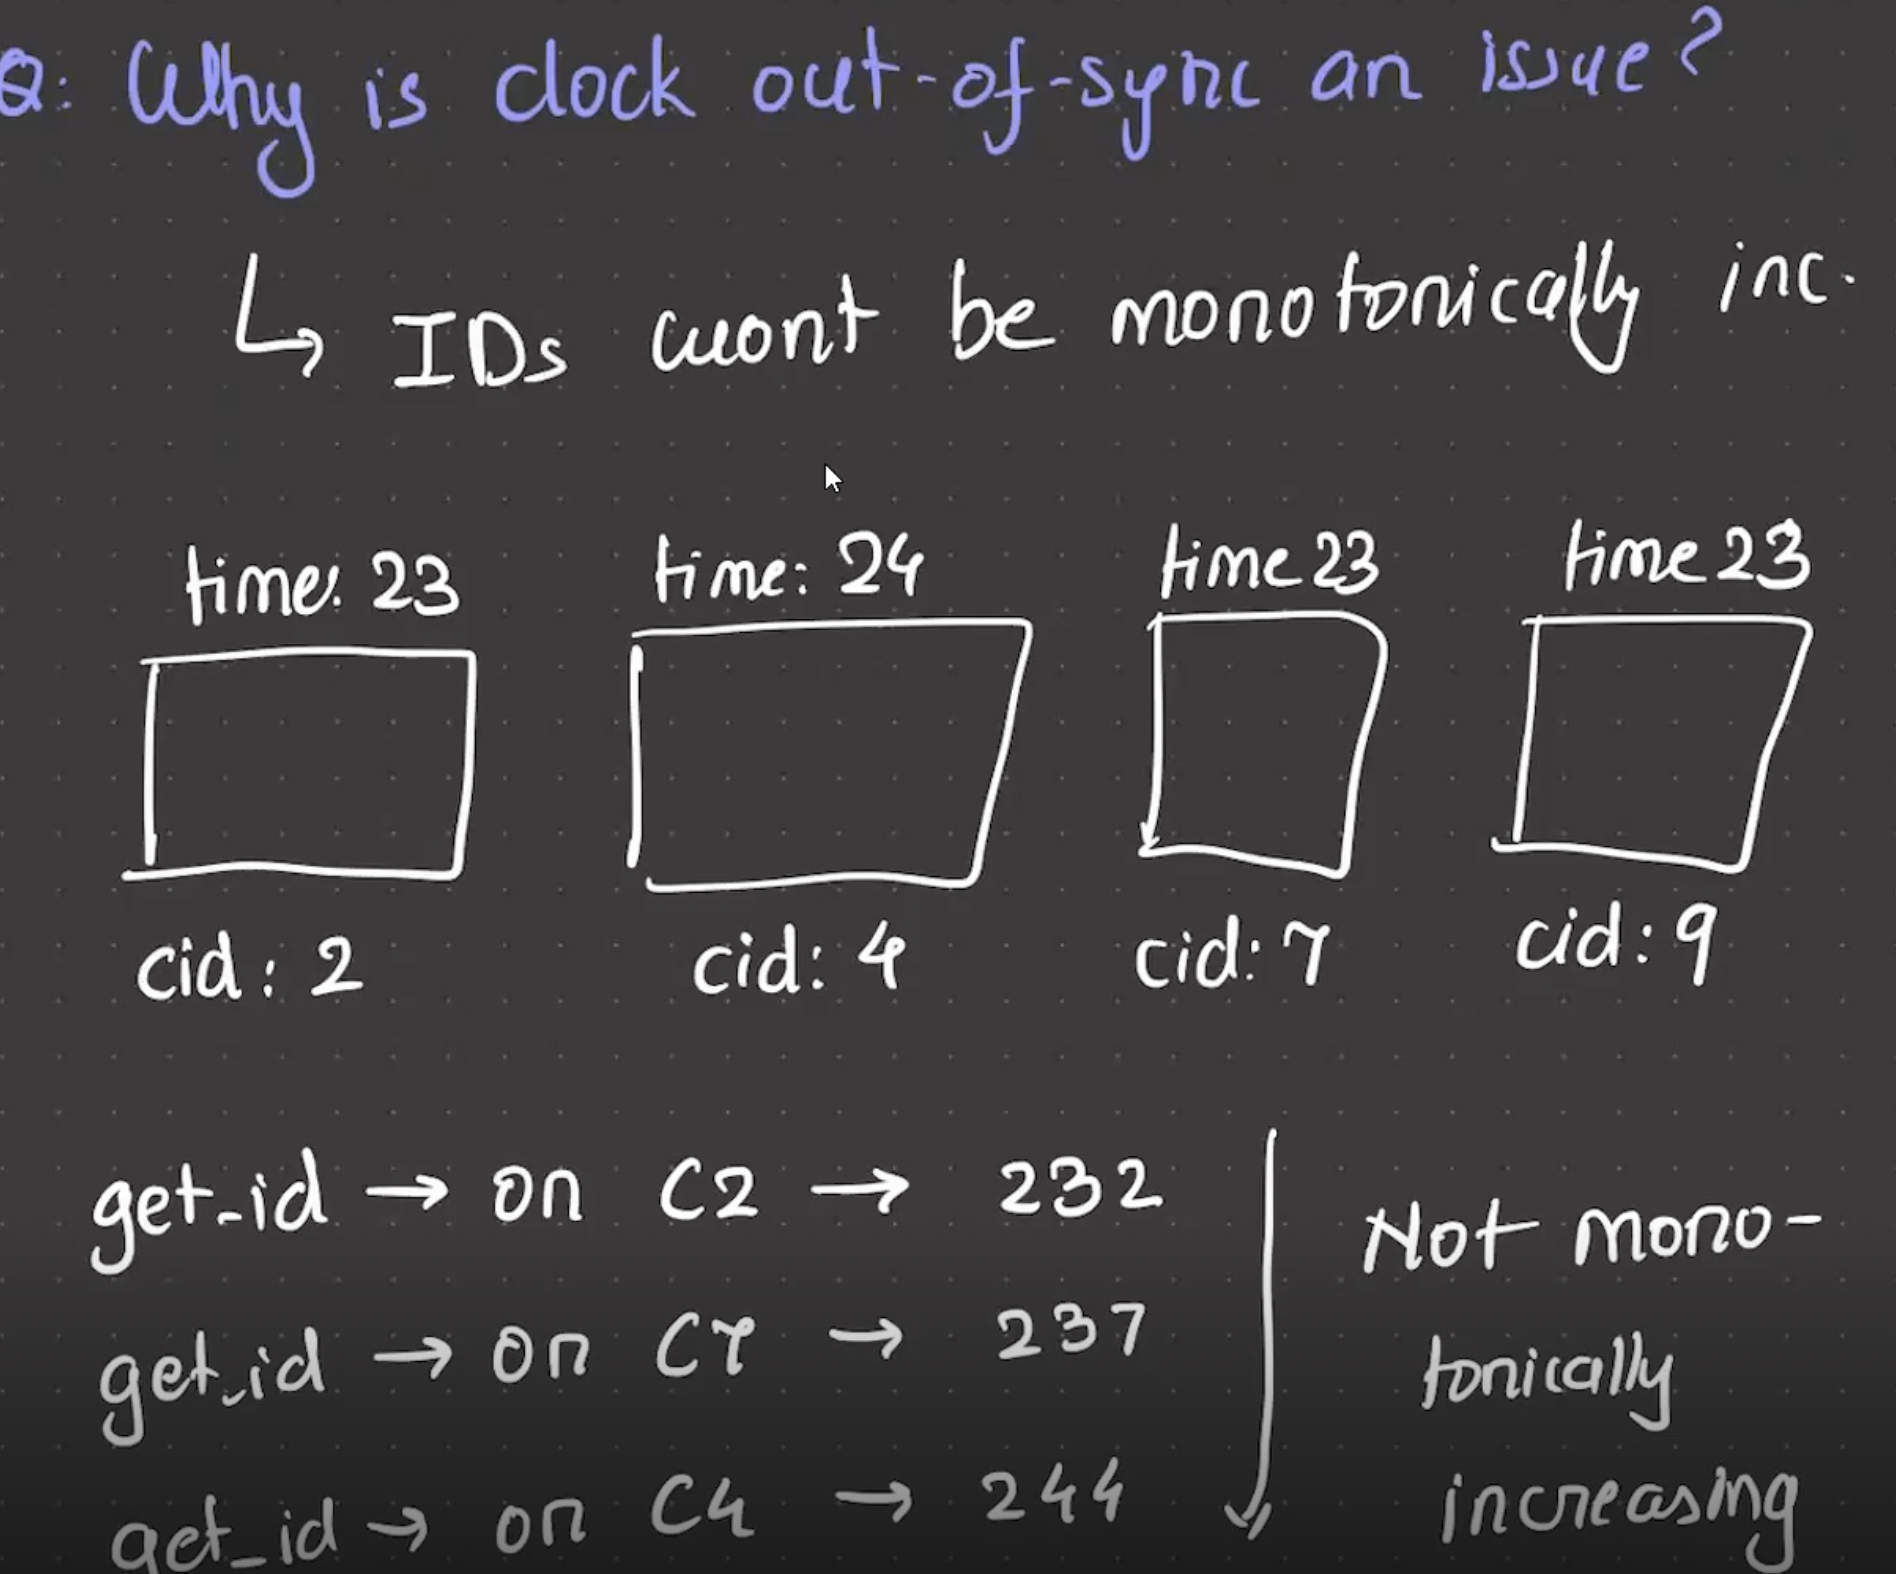 Q: Why is clock out-of-sync an issue?
↳ IDs wont be monotonically inc.
time: 23 time: 24 time 23 time 23
cid: 2 cid: 4 cid: 7 cid: 9
get_id → on C2 → 232
get_id → on C7 → 237
get_id → on C4 → 244
Not mono-
tonically
increasing